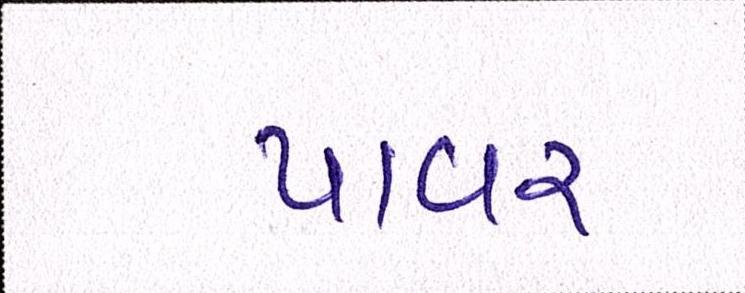 પાવર